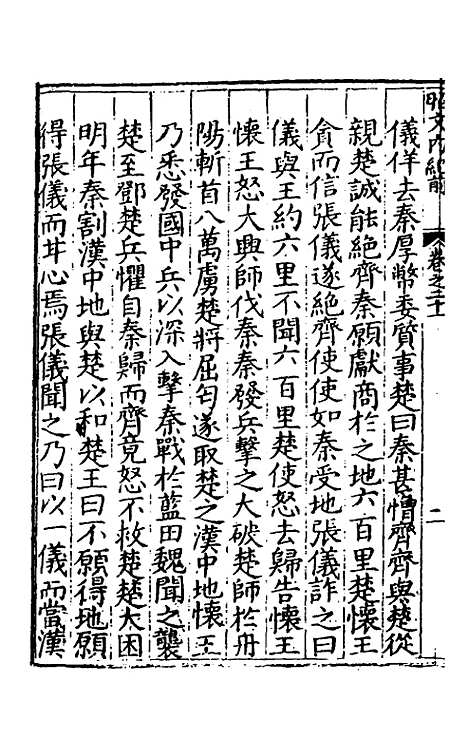 儀佯去秦厚幣委質事楚曰秦甚憎齊齊與楚從
親楚誠能絕齊秦願獻商於之地六百里楚懷王
貪而信張儀遂絕齊使使如秦受地張儀詐之曰
儀與王約六里不聞六百里楚使怒去歸告懷王
懷王怒大興師伐秦秦發兵擊之大破楚師於丹
陽斬首八萬虜楚將屈匄遂取楚之漢中地懷王
乃悉發國中兵以深入擊秦戰於藍田魏聞之襲
楚至鄧楚兵懼自秦歸而齊竟怒不救楚楚大困
明年秦割漢中地與楚以和楚王曰不願得地願
得張儀而甘心焉張儀聞之乃曰以一儀而當漢
卷之二十
二